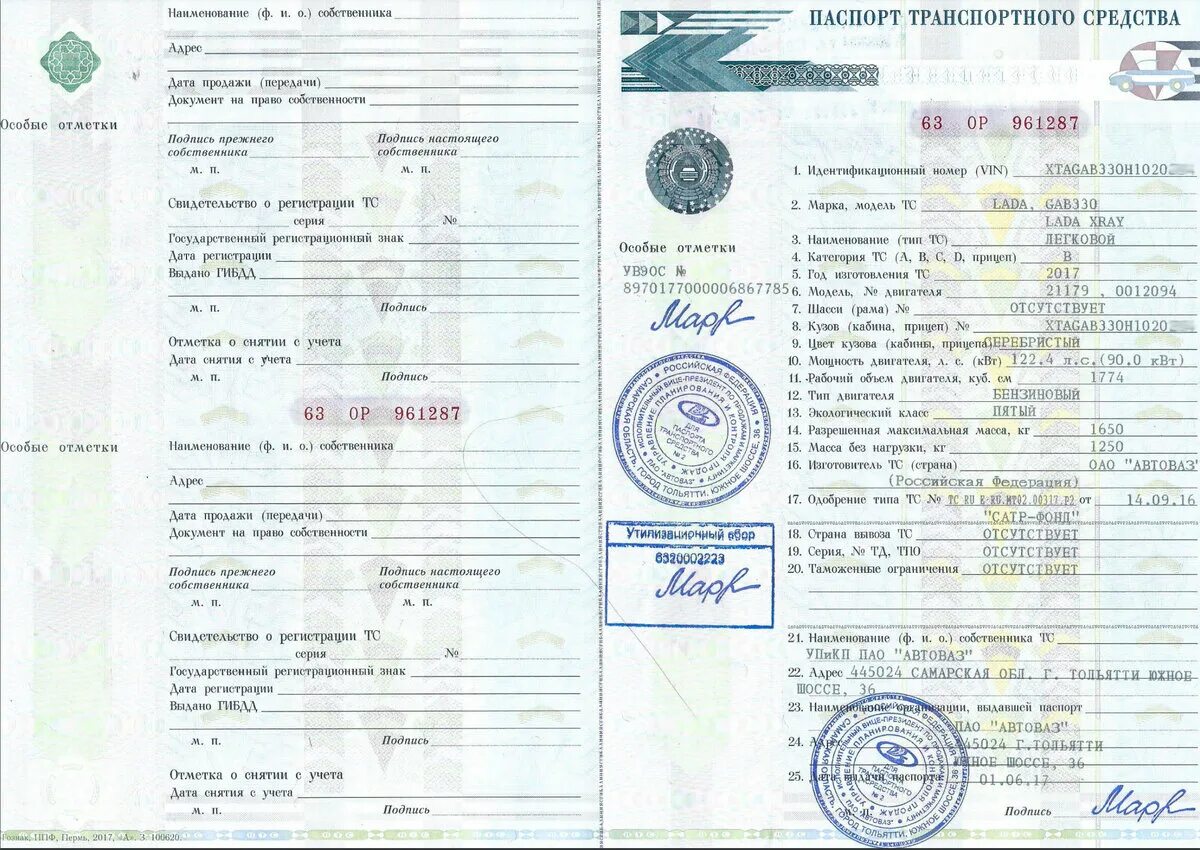 Наименование (ф. и. о.) собственника
Адрес
Дата продажи (передачи)
Документ на право собственности
Особые отметки
Подпись прежнего собственника
Подпись настоящего собственника
м. п.
м. п.
Свидетельство о регистрации ТС
серия №
Государственный регистрационный знак
Дата регистрации
Выдано ГИБДД
м. п. Подпись
Отметка о снятии с учета
Дата снятия с учета
м. п. Подпись
63 ОР 961287
Особые отметки
Наименование (ф. и. о.) собственника
Адрес
Дата продажи (передачи)
Документ на право собственности
Подпись прежнего собственника
Подпись настоящего собственника
м. п.
м. п.
Свидетельство о регистрации ТС
серия №
Государственный регистрационный знак
Дата регистрации
Выдано ГИБДД
м. п. Подпись
Отметка о снятии с учета
Дата снятия с учета
м. п. Подпись
Гознак, ППФ, Пермь, 2017, «А». З. 100620.
ПАСПОРТ ТРАНСПОРТНОГО СРЕДСТВА
63 ОР 961287
Особые отметки
УВЭОС №
8970177000006867785
РОССИЙСКАЯ ФЕДЕРАЦИЯ
САМАРСКАЯ ОБЛАСТЬ, ГОРОД ТОЛЬЯТТИ, ЮЖНОЕ ШОССЕ, 36
ИСПОЛНИТЕЛЬНЫЙ ВИЦЕ-ПРЕЗИДЕНТ ПО ПРОДАЖАМ И МАРКЕТИНГУ
УПРАВЛЕНИЕ ПЛАНИРОВАНИЯ И КОНТРОЛЯ ПРОДАЖ
ПАО "АВТОВАЗ"
ДЛЯ
ПАСПОРТА
ТРАНСПОРТНОГО
СРЕДСТВА
№ 2
Утилизационный сбор
6320002223
1. Идентификационный номер (VIN) XTAGAB330H1020
2. Марка, модель ТС LADA, GAB330
LADA XRAY
3. Наименование (тип ТС) ЛЕГКОВОЙ
4. Категория ТС (А, В, С, D, прицеп) В
5. Год изготовления ТС 2017
6. Модель, № двигателя 21179 , 0012094
7. Шасси (рама) № ОТСУТСТВУЕТ
8. Кузов (кабина, прицеп) № XTAGAB330H1020
9. Цвет кузова (кабины, прицепа) СЕРЕБРИСТЫЙ
10. Мощность двигателя, л. с. (кВт) 122.4 л.с.(90.0 кВт)
11. Рабочий объем двигателя, куб. см 1774
12. Тип двигателя БЕНЗИНОВЫЙ
13. Экологический класс ПЯТЫЙ
14. Разрешенная максимальная масса, кг 1650
15. Масса без нагрузки, кг 1250
16. Изготовитель ТС (страна) ОАО "АВТОВАЗ"
(Российская Федерация)
17. Одобрение типа ТС № ТС RU E-RU.МТ02.00317.Р2 от 14.09.16
"САТР-ФОНД"
18. Страна вывоза ТС ОТСУТСТВУЕТ
19. Серия, № ТД, ТПО ОТСУТСТВУЕТ
20. Таможенные ограничения ОТСУТСТВУЕТ
21. Наименование (ф. и. о.) собственника ТС
УПиКП ПАО "АВТОВАЗ"
22. Адрес 445024 САМАРСКАЯ ОБЛ. Г. ТОЛЬЯТТИ ЮЖНОЕ
ШОССЕ, 36
23. Наименование организации, выдавшей паспорт
ПАО "АВТОВАЗ"
24. Адрес 445024 Г.ТОЛЬЯТТИ
ЮЖНОЕ ШОССЕ, 36
25. Дата выдачи паспорта 01.06.17
м. п. Подпись